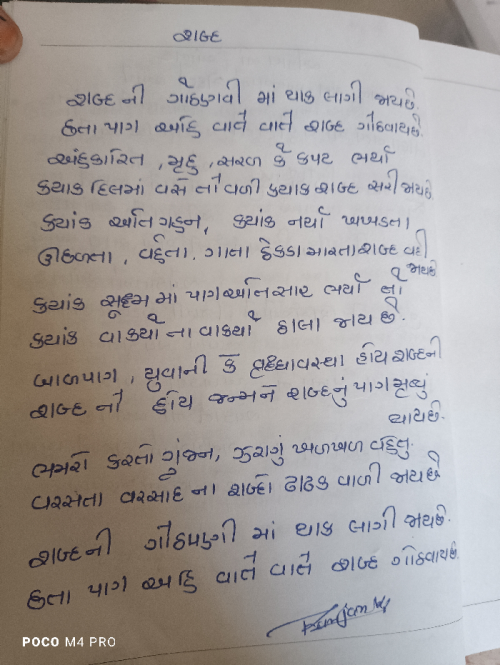 શબ્દ
શબ્દ ની ગોઠણવી માં થાક લાગી જાયછે.
છતા પાગ અહિ વાતે વાતે શબ્દ ગોઠવાયછે.
અહંકારિત, મૃદુ, સરળ કે કપટ ભર્યા
કયાક દિલમાં વસે તો વળી કયાક શબ્દ સરી જાયછે
કયાંક અતિ ગહન, કયાંક નર્યા ખખડતા
ઊછળતા, વહેતા. ગાતા ઠેકડા મારતા શબ્દ વહી
જાયછે
કયાંક સૂક્ષ્મ માં પાગ અતિ સાર ભર્યા તો
કયાંક વાકયો ના વાકયો ઠાલા જાય છે.
બાળપાગ, યુવાની કે વૃધ્ધાવસ્થા હોય શબ્દની
શબ્દ નો હોય જન્મને શબ્દનું પાગ મૃત્યું
થાયછે.
ભમરો કરતો ગુંજન, ઝરાગું ખળખળ વહેતુ.
વરસતા વરસાદ ના શબ્દો ઢાઢક વાળી જાયછે
શબ્દની ગોઠપણી માં થાક લાગી જાયછે.
છતા પાગ અહિ વાતે વાતે શબ્દ ગોઠવાયછે.
POCO M4 PRO